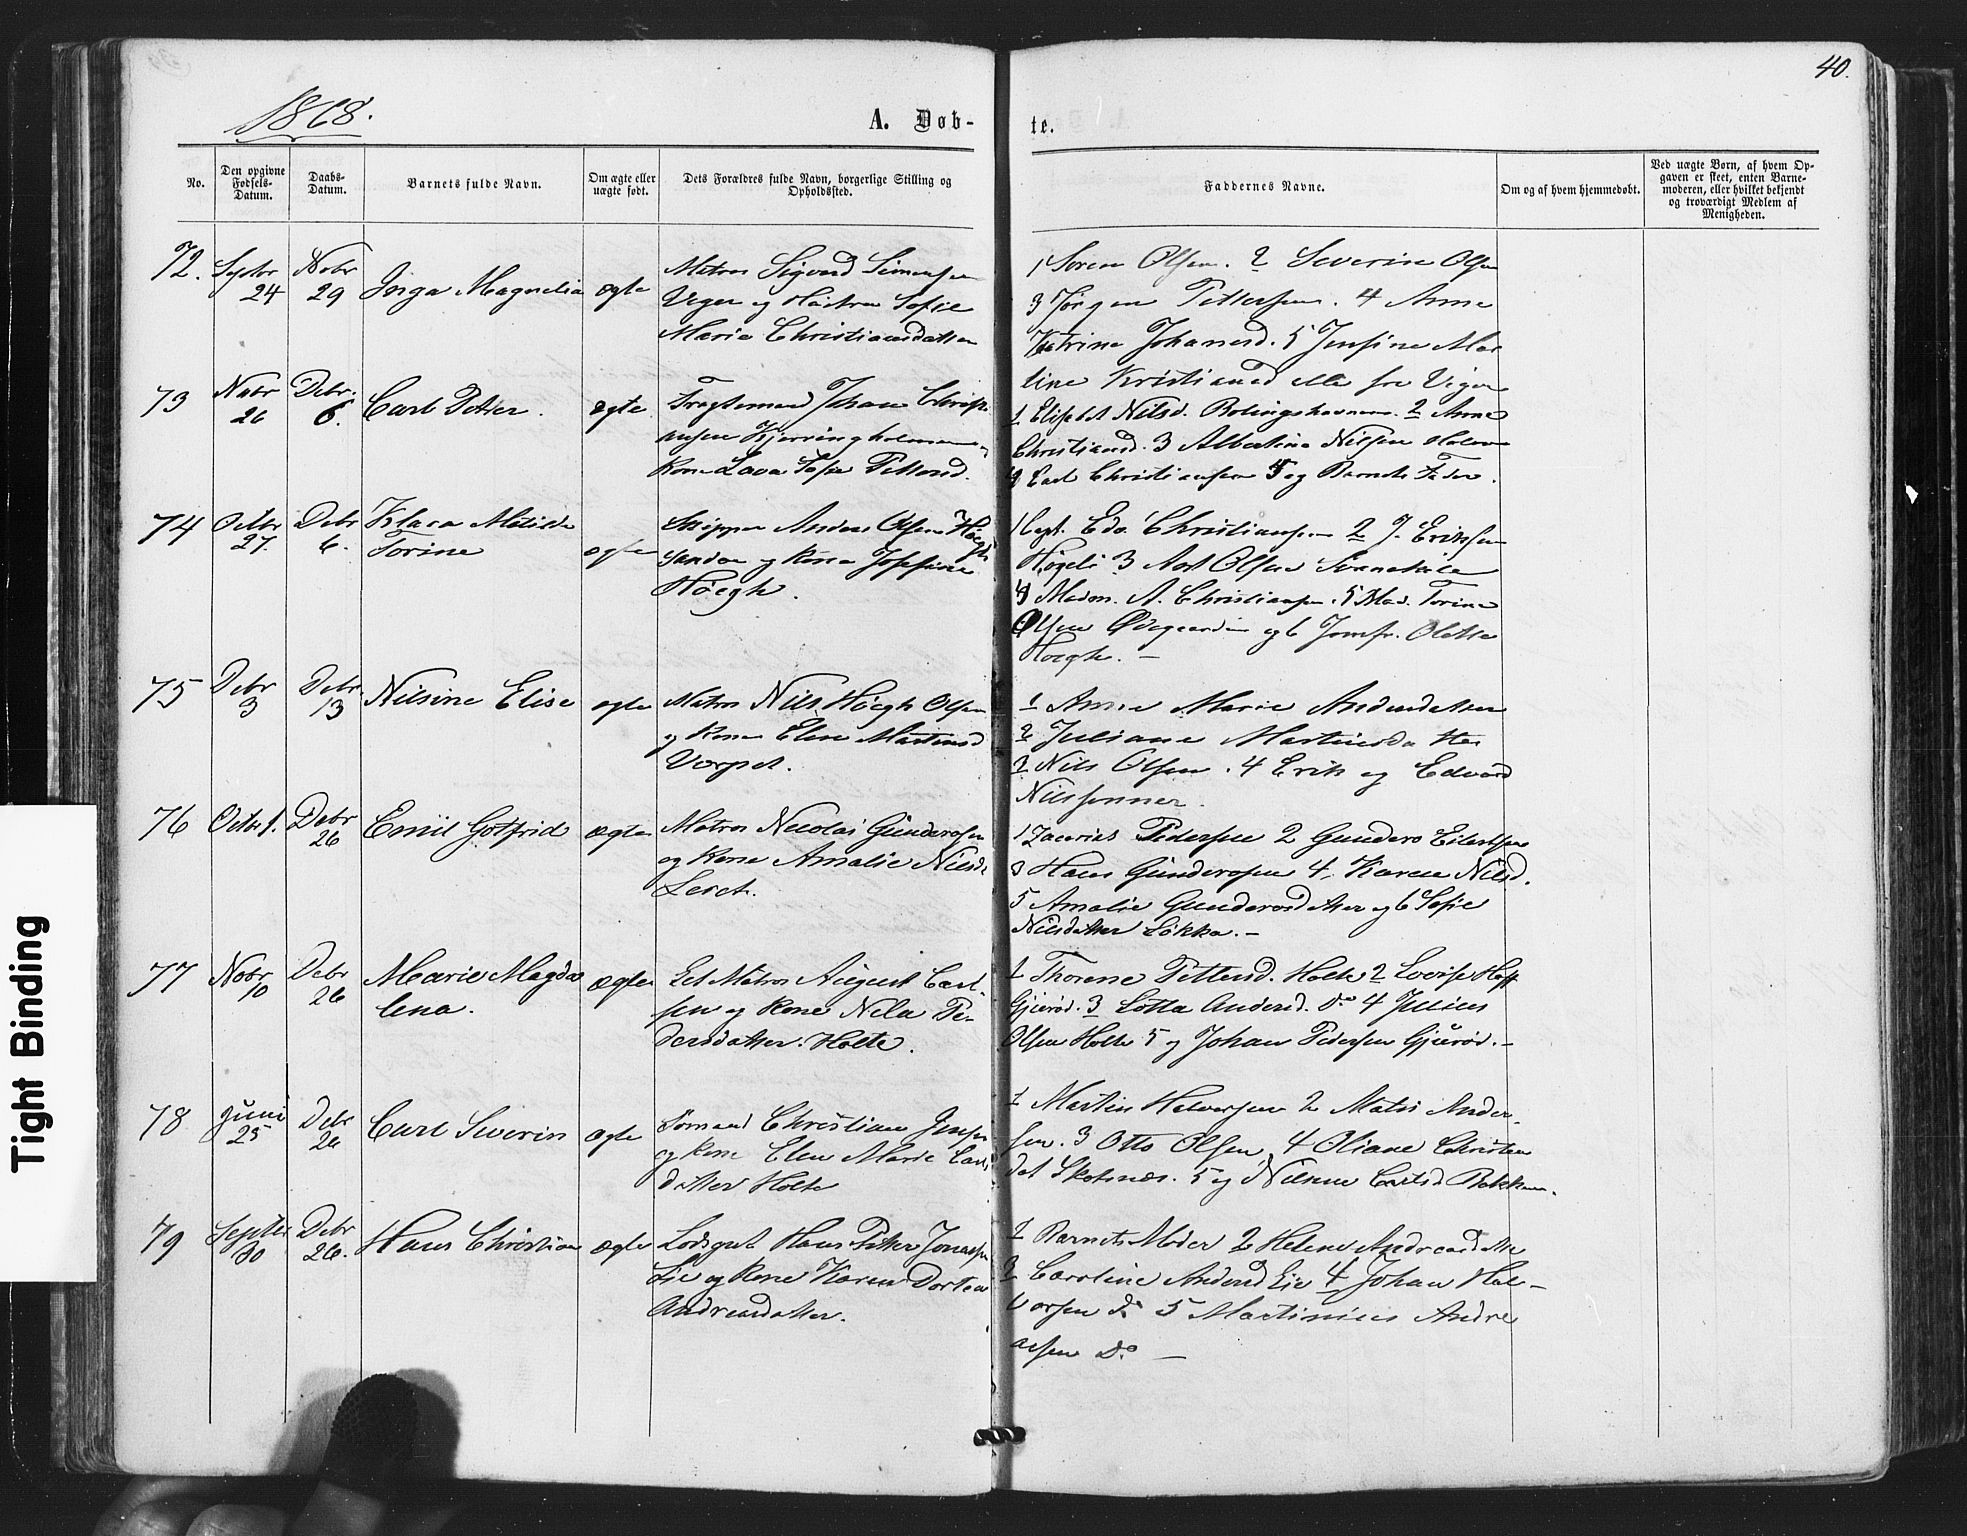 40.
1868.
A. Døb-
te.
No.
Den opgivne Fødsels-Datum.
Daabs-Datum.
Barnets fulde Navn.
Om ægte eller uægte født.
Dets Forældres fulde Navn, borgerlige Stilling og Opholdssted.
Faddernes Navne.
Om og af hvem hjemmedøbt.
Ved uægte Børn, af hvem Opgaven er skeet, enten Barnemoderen, eller hvilket bekjendt og troværdigt Medlem af Menigheden.
72.
24
Nobr 29
Inga Magnelia
ægte
Matros Sigvard Simonsen
og Hustru Sofie
Marie Christiansdatter
1 Søren Olsen. 2 Severin Olsen
3 Jørgen Pettersen. 4 Anne
Katrine Johanesd. 5 Jensine Ma
line Kristiansd alle fra
73
Nobr 26
Debr. 6.
Carl Petter.
ægte
Johan Christi
ansen Kjerringholmen
Kone Lava Sofie Pettersd.
1 Elisabet Nilsd. 2 Anne
Christiansd. 3 Albertine Nilsen Holmen
4 Carl Christiansen 5 og Barnets Fader.
74
Octbr 27.
Debr 6.
Klara Matilde
Torine
ægte
Skipper Anders Olsen Høegh
og Kone Josefine
Høegh.
1 Capt. Edv. Christiansen 2 J. Eriksen
3 Olsen
4 Madm. A. Christiansen. 5 Mad. Torine
Olsen Ødegaarden og 6 Jomfr. Olette
Høegh. —
75
Debr 3
Debr 13
Nilsine Elise
ægte
Matros Nils Høegh Olsen
og Kone Elen Martinsd
1 Anne Marie Andersdatter
2 Juliane Martinsdatter
3 Nils Olsen. 4 Erik og Edvard
Nilssønner.
76
Octbr 1.
Debr 26
Emil Gotfrid
ægte
Matros Nicolai Gundersen
og Kone Amalie Nilsd.
1 Zacarias Pedersen 2 Gunder Eilertsen
3 Hans Gundersen 4. Karen Nilsd.
5 Amalie Gundersdatter og 6 Sofie
Nilsdatter Løkka. —
77
Nobr 10
Debr 26
Marie Magda
lena.
ægte
Matros August Carl-
sen og Kone Nela Pe-
dersdatter. Holte.
1 Thorene Pettersd. Holte 2 Lovise Hoff
Gjerød. 3 Lotta Andersd. do 4 Julius
Olsen Holte 5 og Johan Pedersen Gjerød. —
78
Juni 25
Debr 26
Carl Severin
ægte
Sømand Christian Jensen
og Kone Elen Marie Carls
datter Holte
1 Martin Halvorsen 2 Mats Ander-
sen. 3 Otto Olsen 4 Oliane Christen
dat Skotsnæs. 5 og Nilsine Bakken.
79
Septbr 30
Debr 26.
Hans Christian
ægte
Lodsgut Hans Petter Jonassen
Lie og Kone Karen Dortea
Andreasdatter.
1 Barnets Moder 2 Helene Andreasdatter
3 Caroline Andersd Lie 4 Johan Hal-
vorsen do 5 Martinius Andre
asen Do —
Tight Binding